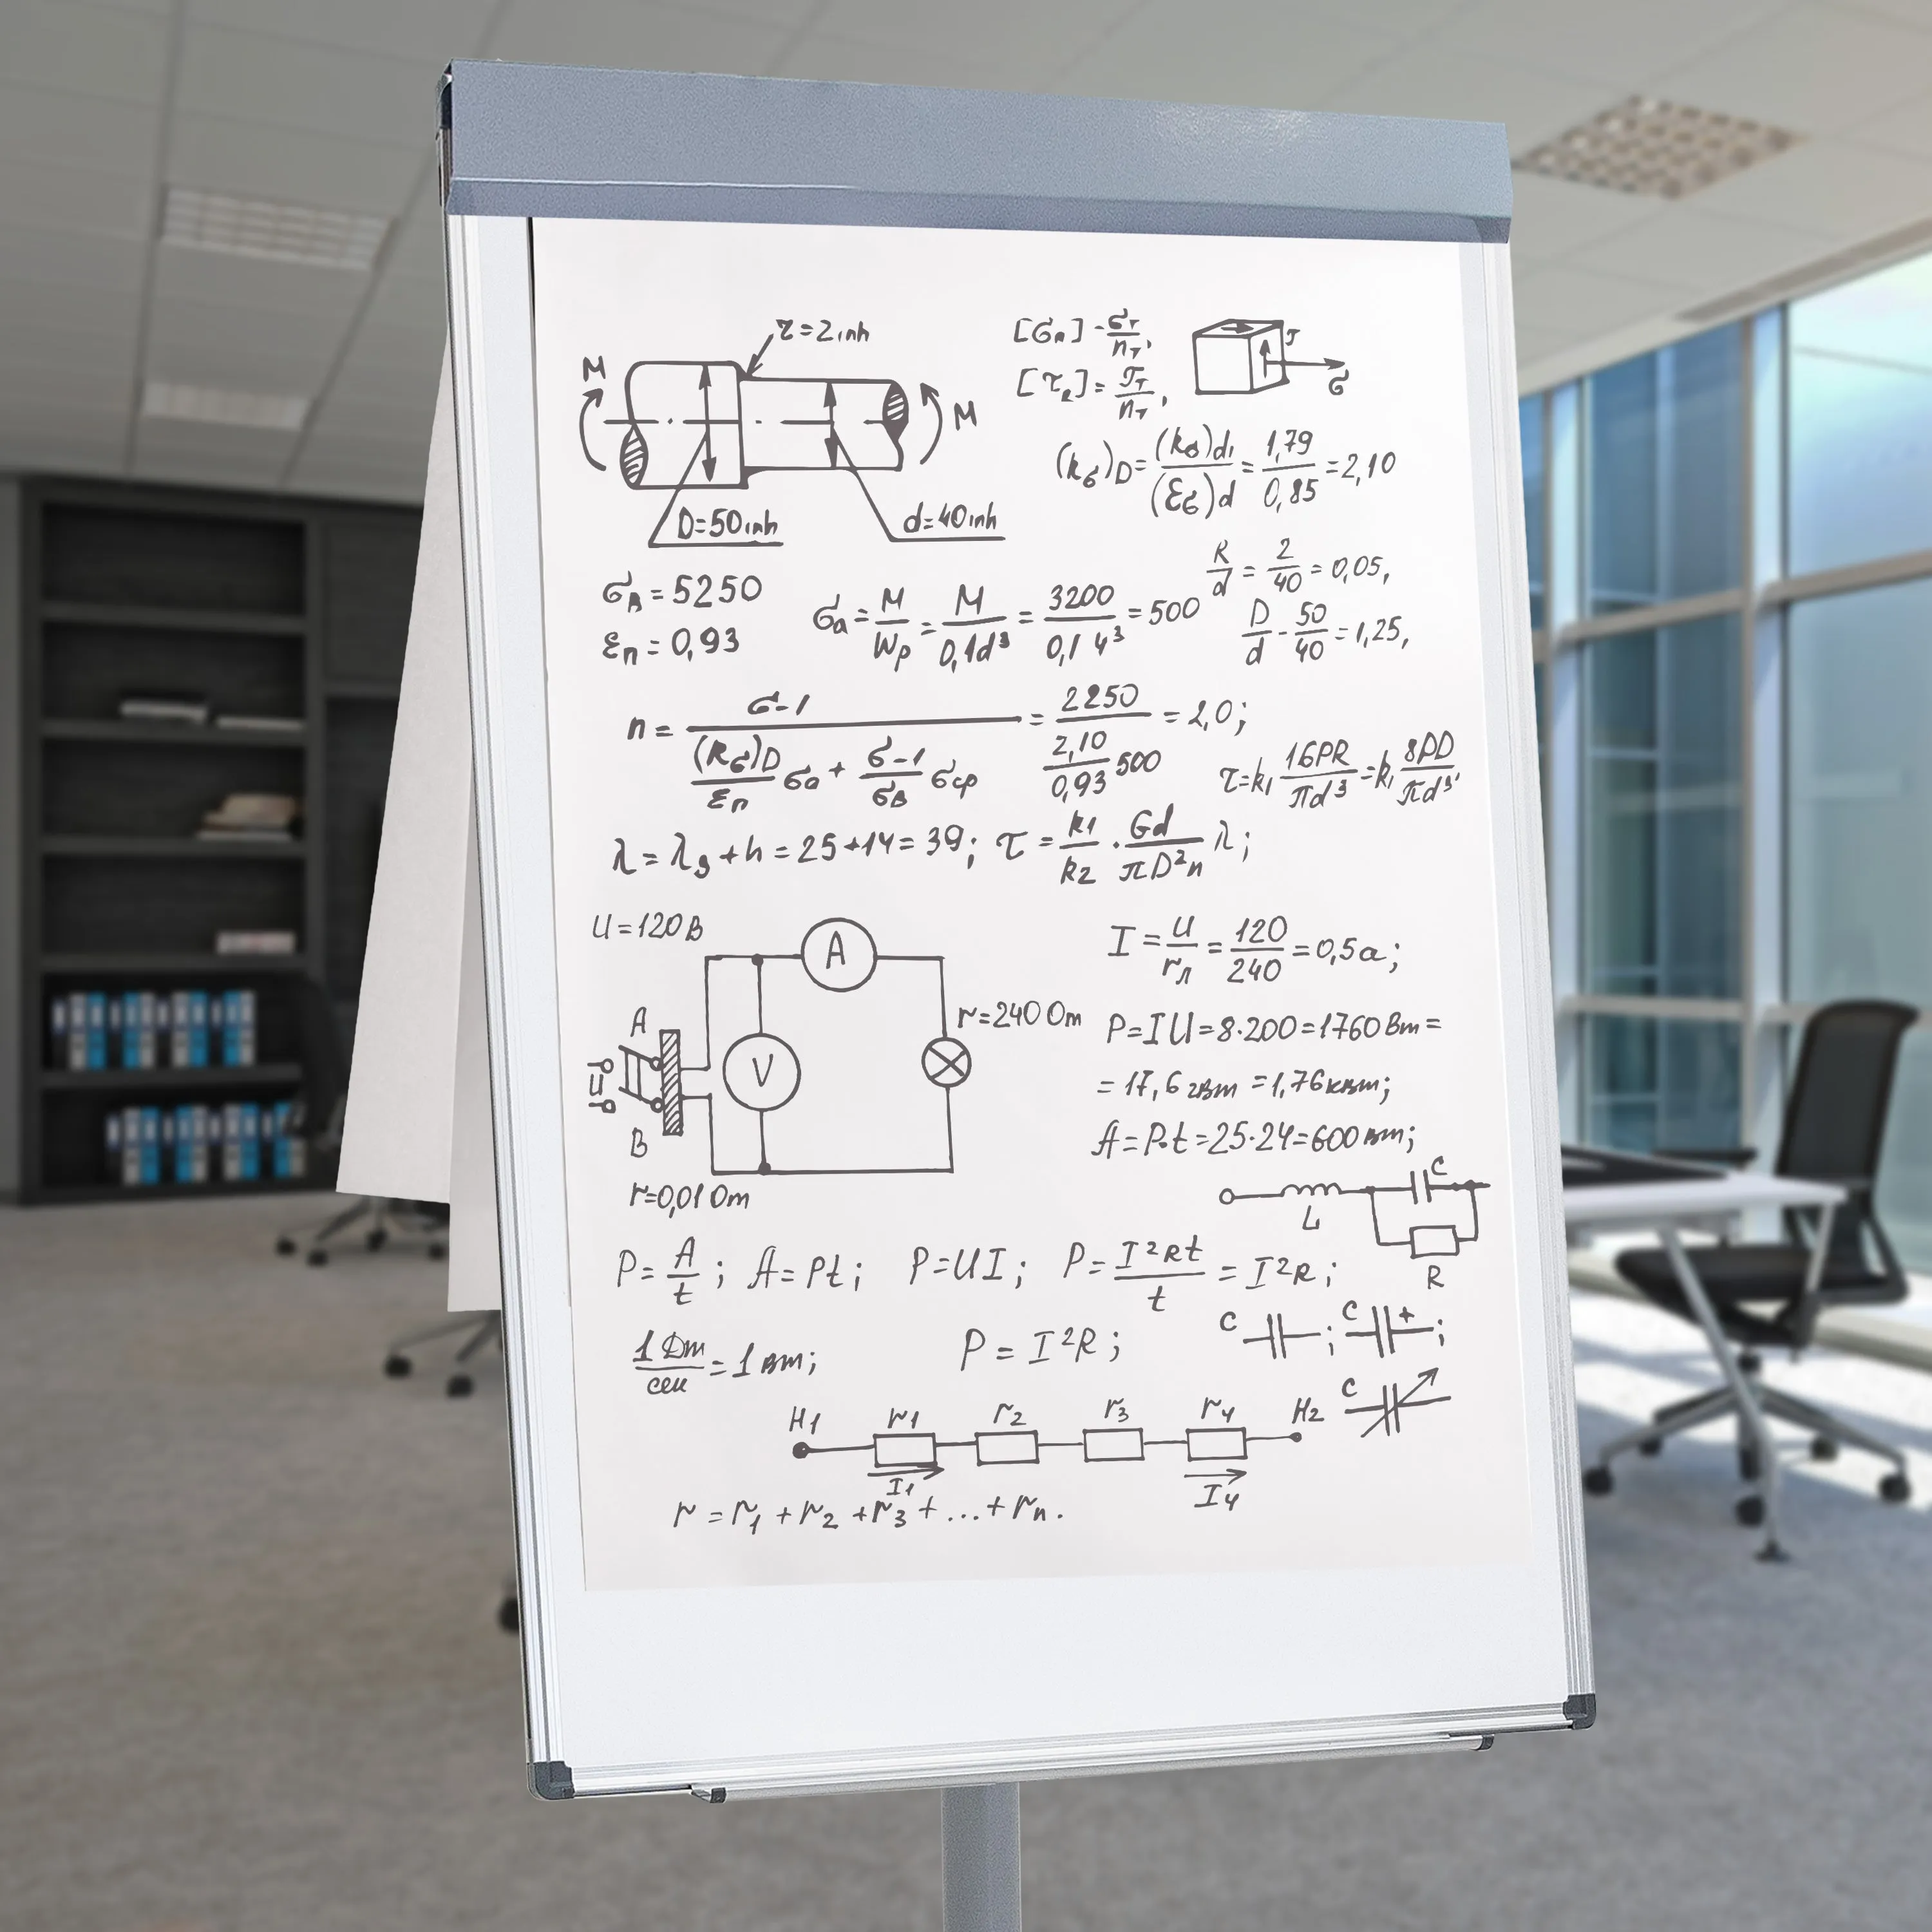 τ=2inh
M
M
D=50inh
d=40inh
[σ_n]-σ_T/n_T,
[τ_R]=𝒯_T/n_T,
τ
σ
(k_σ)D=(k_σ)d₁/(ε_σ)d=1,79/0,85=2,10
σ_B=5250
ε_п=0,93
σ_a=M/Wp=M/0,1d³=3200/0,1 4³=500
R/d=2/40=0,05,
D/d-50/40=1,25,
n=σ-1/((R_σ)D/ε_п σ_a+σ-1/σ_B σ_cp)=2250/(2,10/0,93 500)=2,0;
τ=k₁16PR/πd³=k₁8PD/πd³,
λ=λ₃+h=25+14=39; τ=k₁/k₂·Gd/πD²n λ;
U=120В
A
V
A
B
U
r=240 Om
r=0,01 Om
I=U/r_л=120/240=0,5a;
P=IU=8·200=1760 Вт=
=17,6 гвт=1,76 квт;
A=P·t=25·24=600 вт;
L
C
R
P=A/t; A=Pt; P=UI; P=I²Rt/t=I²R;
1 Dm/сек=1 вт; P=I²R;
C ; C + ;
C
H1 r1 r2 r3 r4 H2
I1 I4
r=r₁+r₂+r₃+...+rₙ.